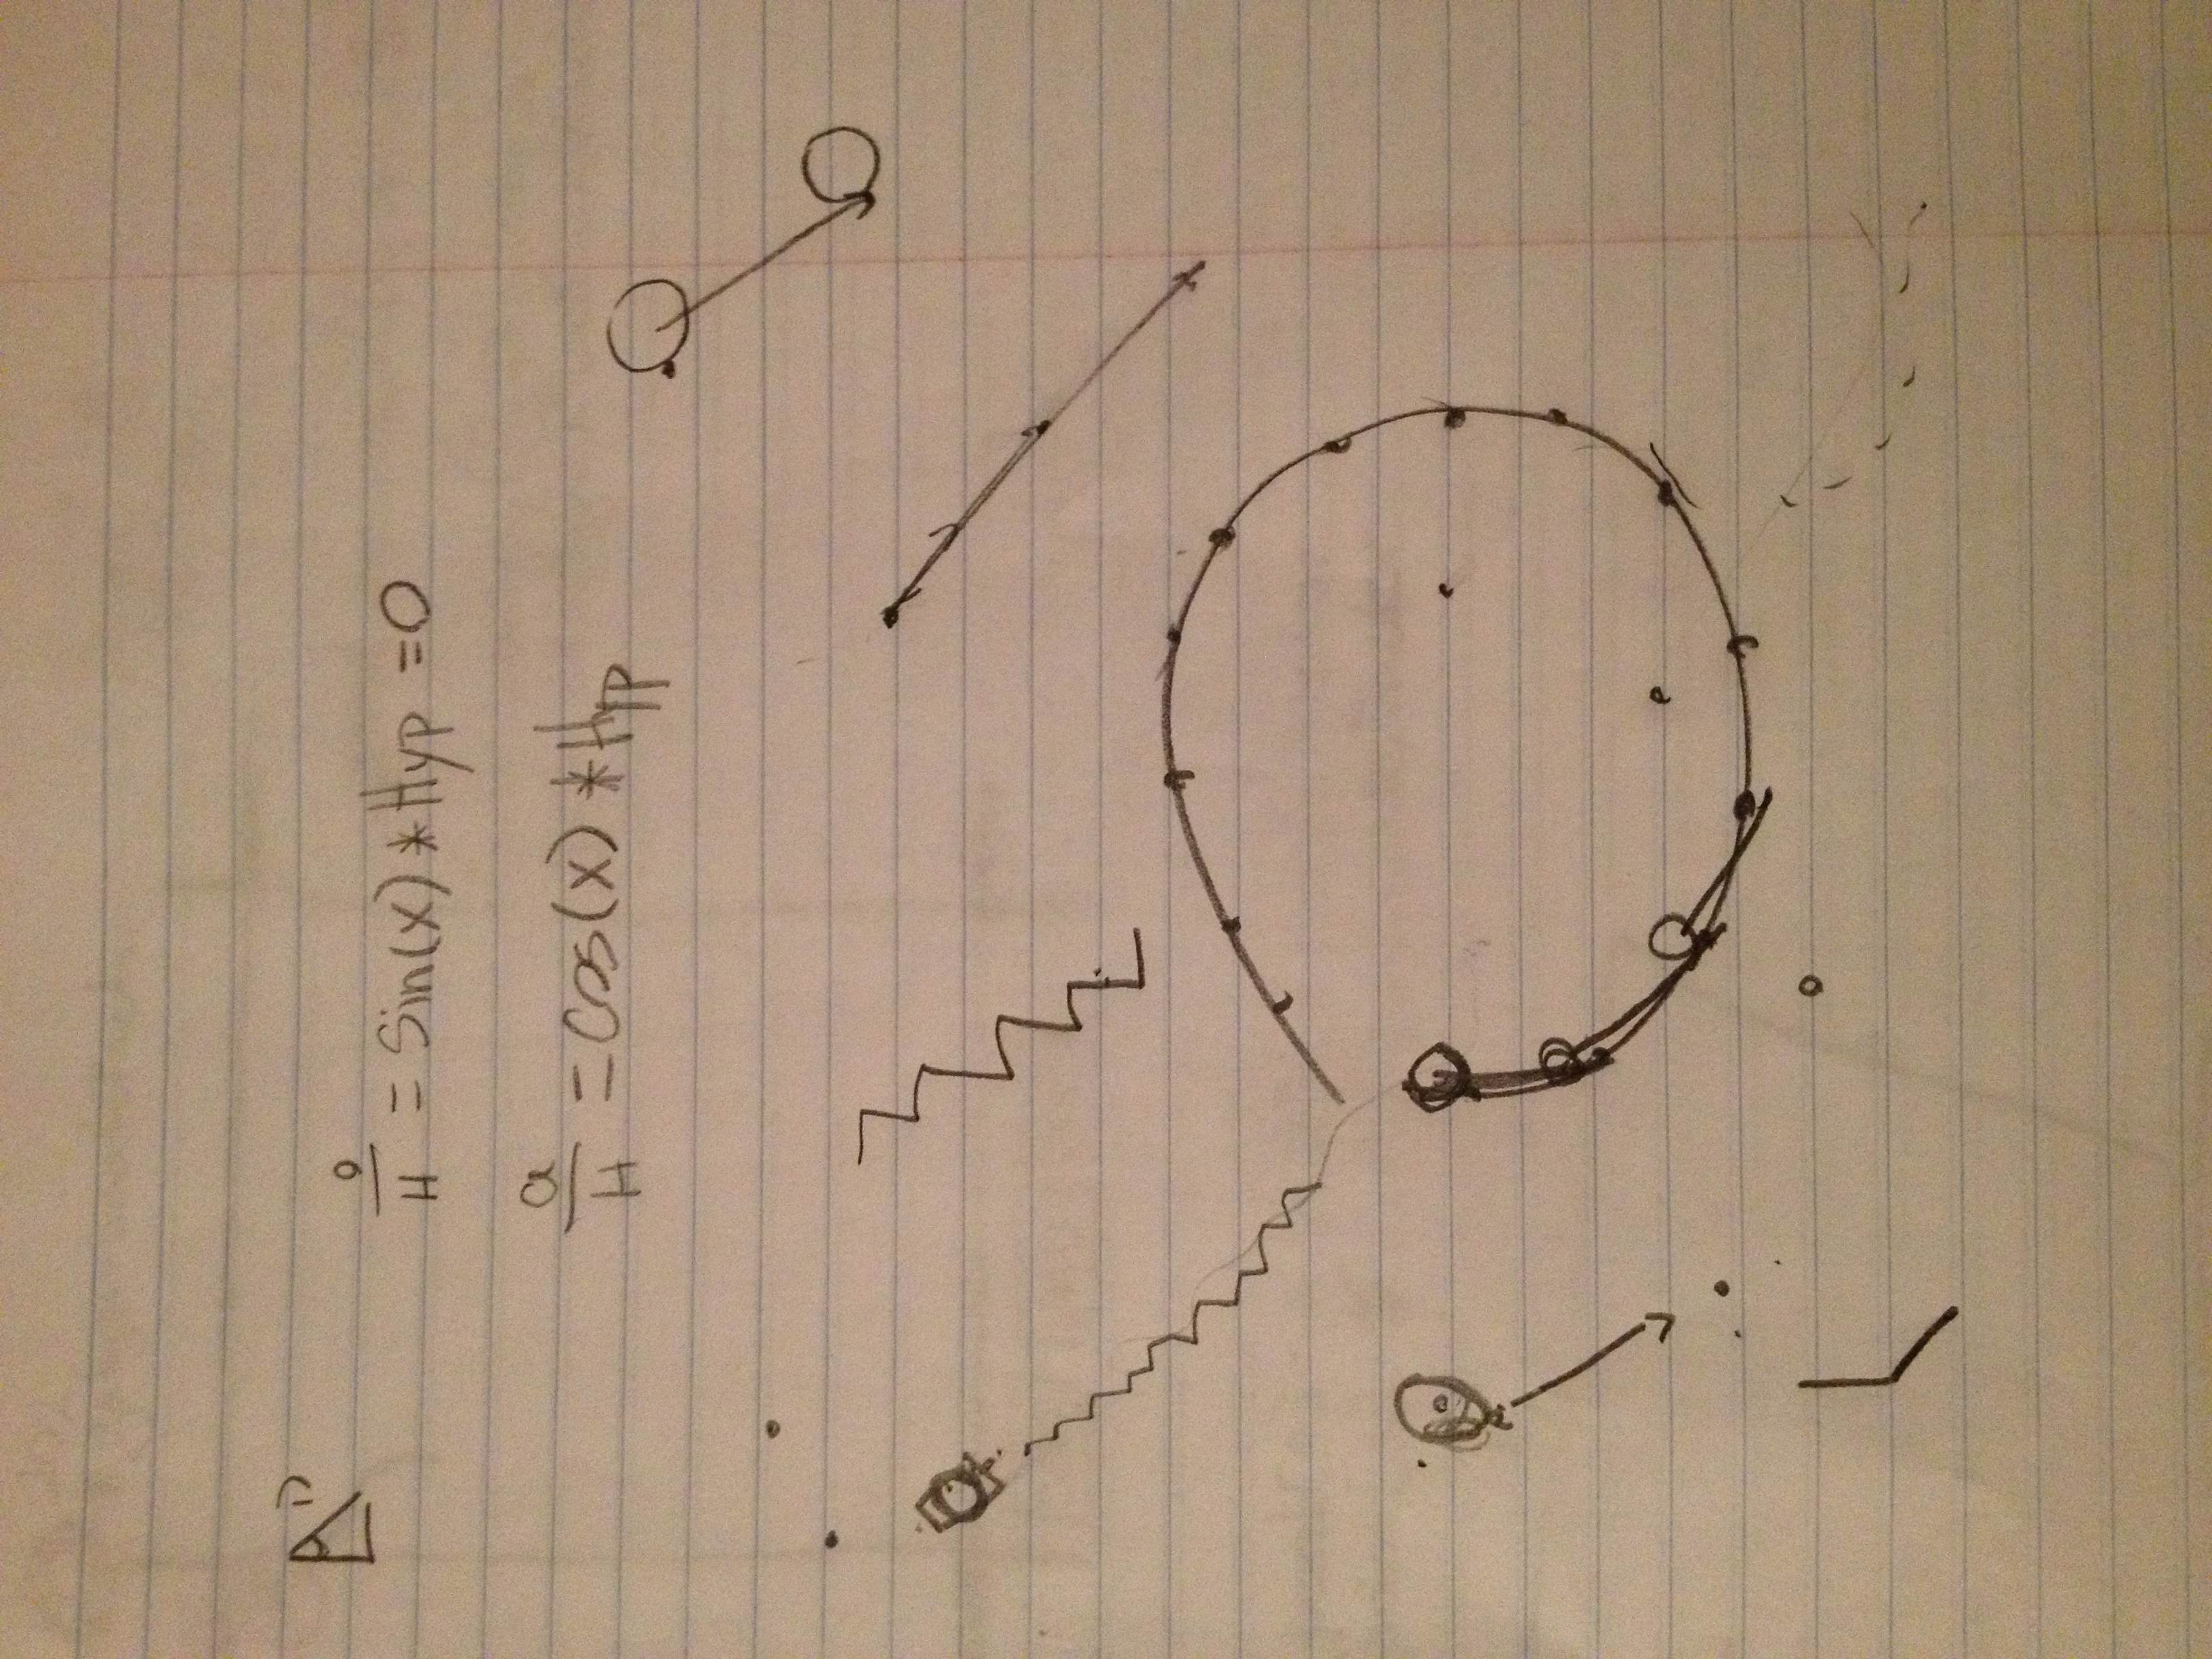 o/H = Sin(x) * Hyp = O
a/H = Cos(x) * Hyp